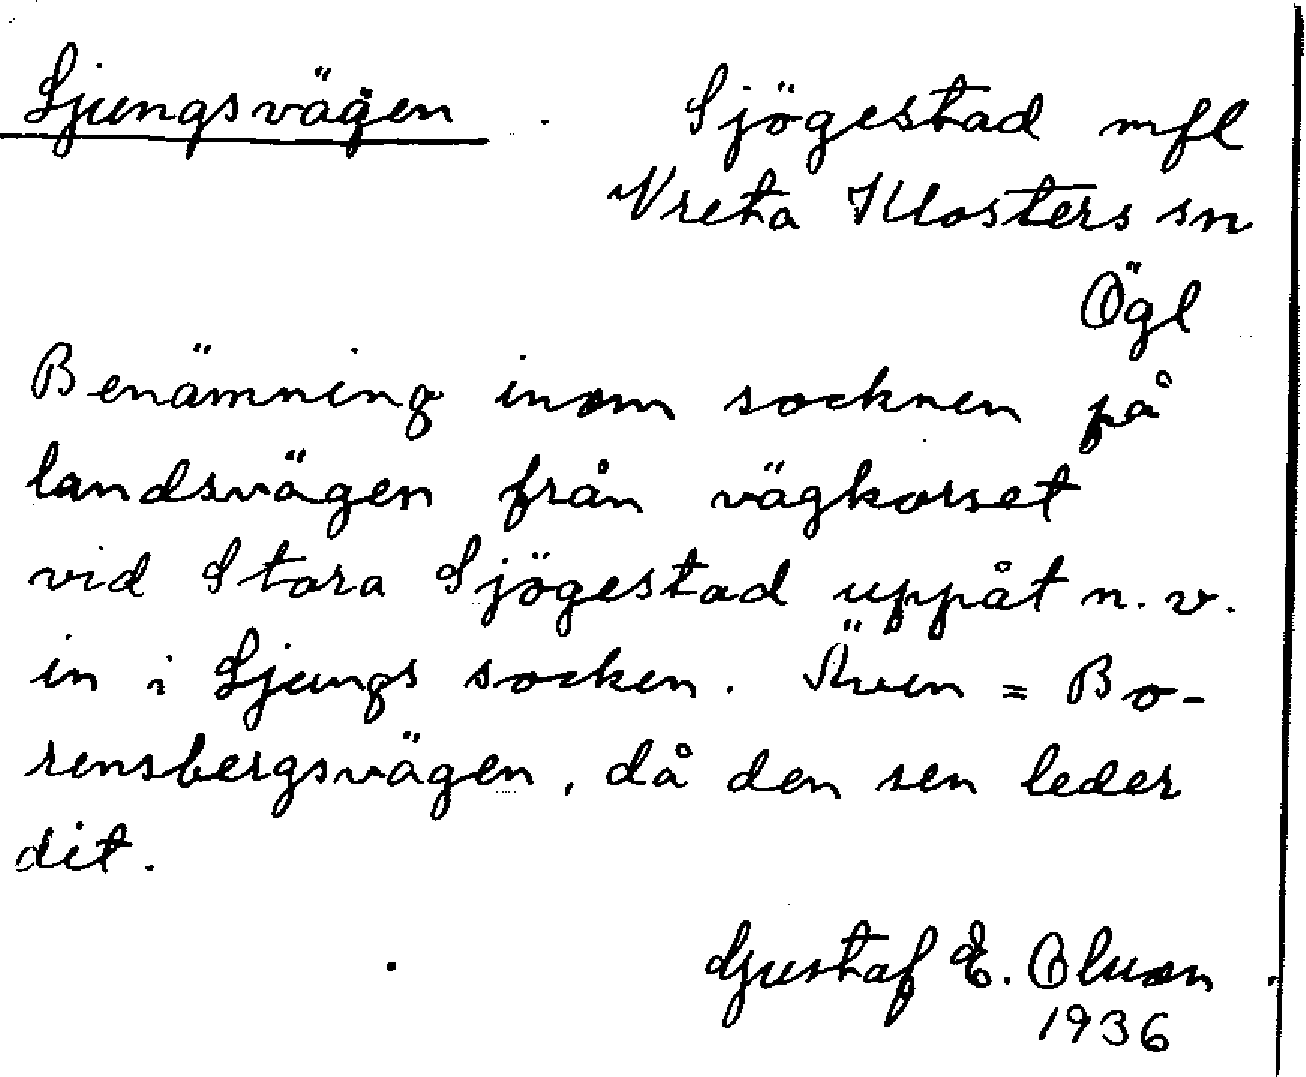 Ljungsvägen . Sjögestad mfl
Vreta Klosters sn
Ögl
Benämning inom socknen på
landsvägen från vägkorset
vid Stora Sjögestad uppåt n. v.
in i Ljungs socken. Även = Bo-
rensbergsvägen, då den sen leder
dit.
Gustaf E. Olsson
1936